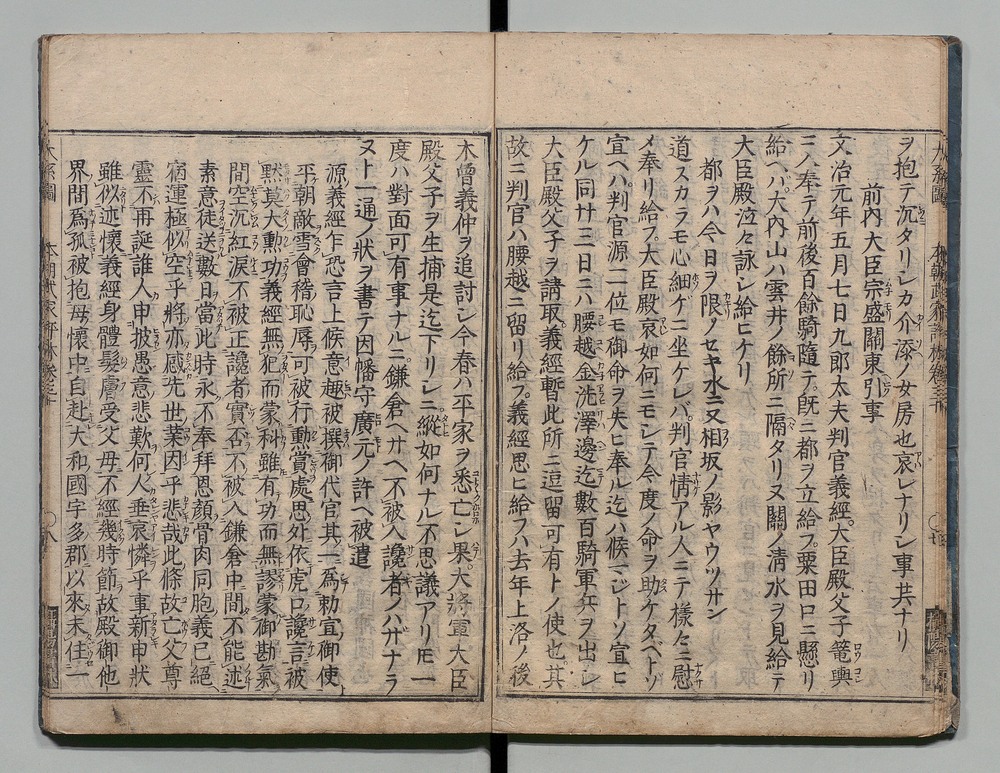 ヲ抱テ沉タリシカ介添ノ女房也哀レナリシ事共ナリ
前内大臣宗盛關東引事
文治元年五月七日九郎太夫判官義經大臣殿父子篭輿
ニノ奉テ前後百餘騎隨テ既ニ都ヲ立給フ粟田口ニ懸リ
給ヘハ大内山ハ雲井ノ餘所ニ隔タリ又關ノ清水ヲ見給テ
大臣殿泣々詠シ給ヒケリ
都ヲハ今日ヲ限ノセキ水ニ又相坂ノ影ヤウツサン
道スカラモ心細ゲニ坐ケレバ判官情アル人ニテ樣々ニ慰
メ奉リ給フ大臣殿哀如何ニモシテ今度ノ命ヲ助ケタベトソ
宜ヘハ判官源二位モ御命ヲ失ヒ奉ル迄ハ候ハジトソ宜ヒ
ケル同廿三日ニハ腰越金洗澤邊迄數百騎軍兵ヲ出シ
大臣殿父子ヲ請取義經暫此所ニ逗留可有トノ使也其
故ニ判官ハ腰越ニ留リ給フ義經思ヒ給フハ去年上洛ノ後
木曾義仲ヲ追討シ今春ハ平家ヲ悉亡シ果大將軍大臣
殿父子ヲ生捕是迄下リシニ縱如何ナル不思議アリ𪜈一
度ハ對面可有事ナルニ鎌倉ヘサヘ不被入讒者ノハザナラ
ヌト一通ノ狀ヲ書テ因幡守廣元ノ許ヘ被遣
源義經乍恐言上候意趣被撰御代官其一爲勅宣御使
平朝敵雪會稽恥辱可被行勲賞處思外依虎口讒言被
默莫大勲功義經無犯而蒙科雖有功而無謬蒙御勘氣
間空沉紅涙不被正讒者實否不被入鎌倉中間不能述
素意徒送數日當此時永不奉拜恩顏骨肉同胞義已絕
宿運極似空乎將亦感先世業因乎悲哉此條故亡父尊
靈不再誕誰人申披愚意悲歎何人垂哀憐乎事新申狀
雖似述懷義經身體髮膚受父母不經幾時節故殿御他
界間爲孤被抱母懷中自赴大和國宇多郡以來未住一